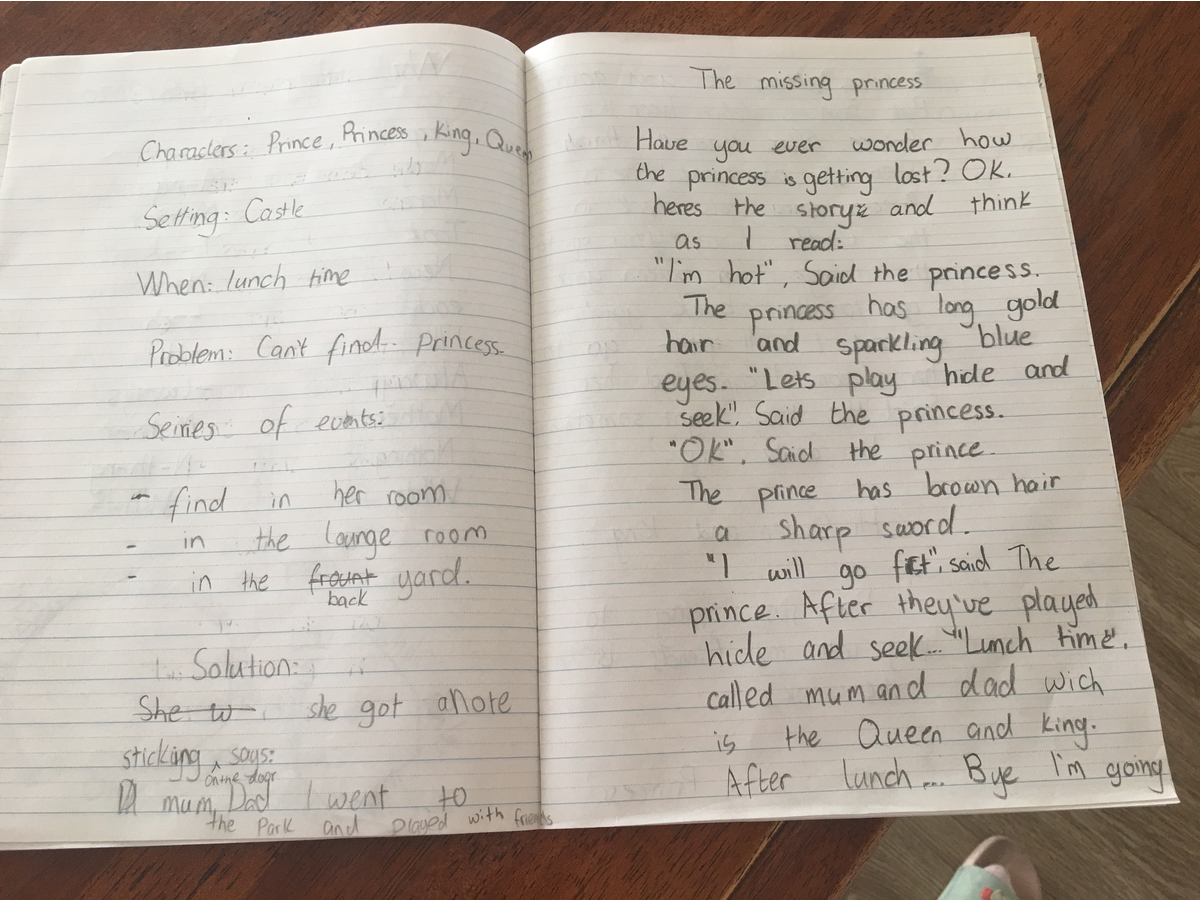 Characlers: Prince, Princess, King, Queen
Setting: Castle
When: lunch time
Problem: Can't find princess.
Seiries of events:
- find in her room
- in the lounge room
- in the frount yard.
back
Solution:
She w she got a note
sticking says:
on the door
mum, Dad I went to
the Park and played with friends
The missing princess
Have you ever wonder how
the princess is getting lost? OK.
heres the story and think
as I read:
"I'm hot", Said the princess.
The princess has long gold
hair and sparkling blue
eyes. "Lets play hide and
seek". Said the princess.
"OK". Said the prince.
The prince has brown hair
a sharp sword.
"I will go", said The
prince. After they've played
hide and seek... "Lunch time".
called mum and dad wich
is the Queen and king.
After lunch... Bye I'm going